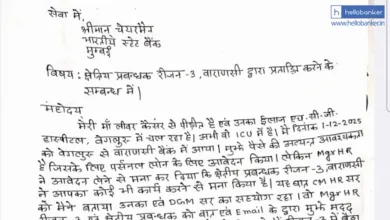 hellobanker
hellobanker.in
सेवा में,
श्रीमान चेयरमैन
भारतीय स्टेट बैंक
मुम्बई
विषय: क्षेत्रिय प्रबन्धक रीजन-3, वाराणसी द्वारा प्रताड़ित करने के
सम्बन्ध में।
महोदय
मेरी माँ लीवर कैंसर से पीड़ीत है एवं उनका इलाज एच.सी.जी.
हास्पीटल, बेंगलुरु में चल रहा है। अभी वो ICU में है। मैं दिनांक 1-12-2025
को बेंगलुरु से वाराणसी बैंक में आया। मुझे पैसे की अत्यन्त आवश्यकता
है जिसके लिए पर्सनल लोन के लिए आवेदन किया। लेकिन Mgr HR
ने आवेदन लेने से मना कर दिया कि क्षेत्रिय प्रबन्धक रीजन-3, वाराणसी
ने आपका कोई भी कार्य करने से मना किया है। यह बात CM HR सर
ने मेरे बताया उनका एवं DGM सर का सहयोग रहा। वो Mgr HR
एवं क्षेत्रिय प्रबन्धक को बात एवं Email के द्वारा मुझे मदद